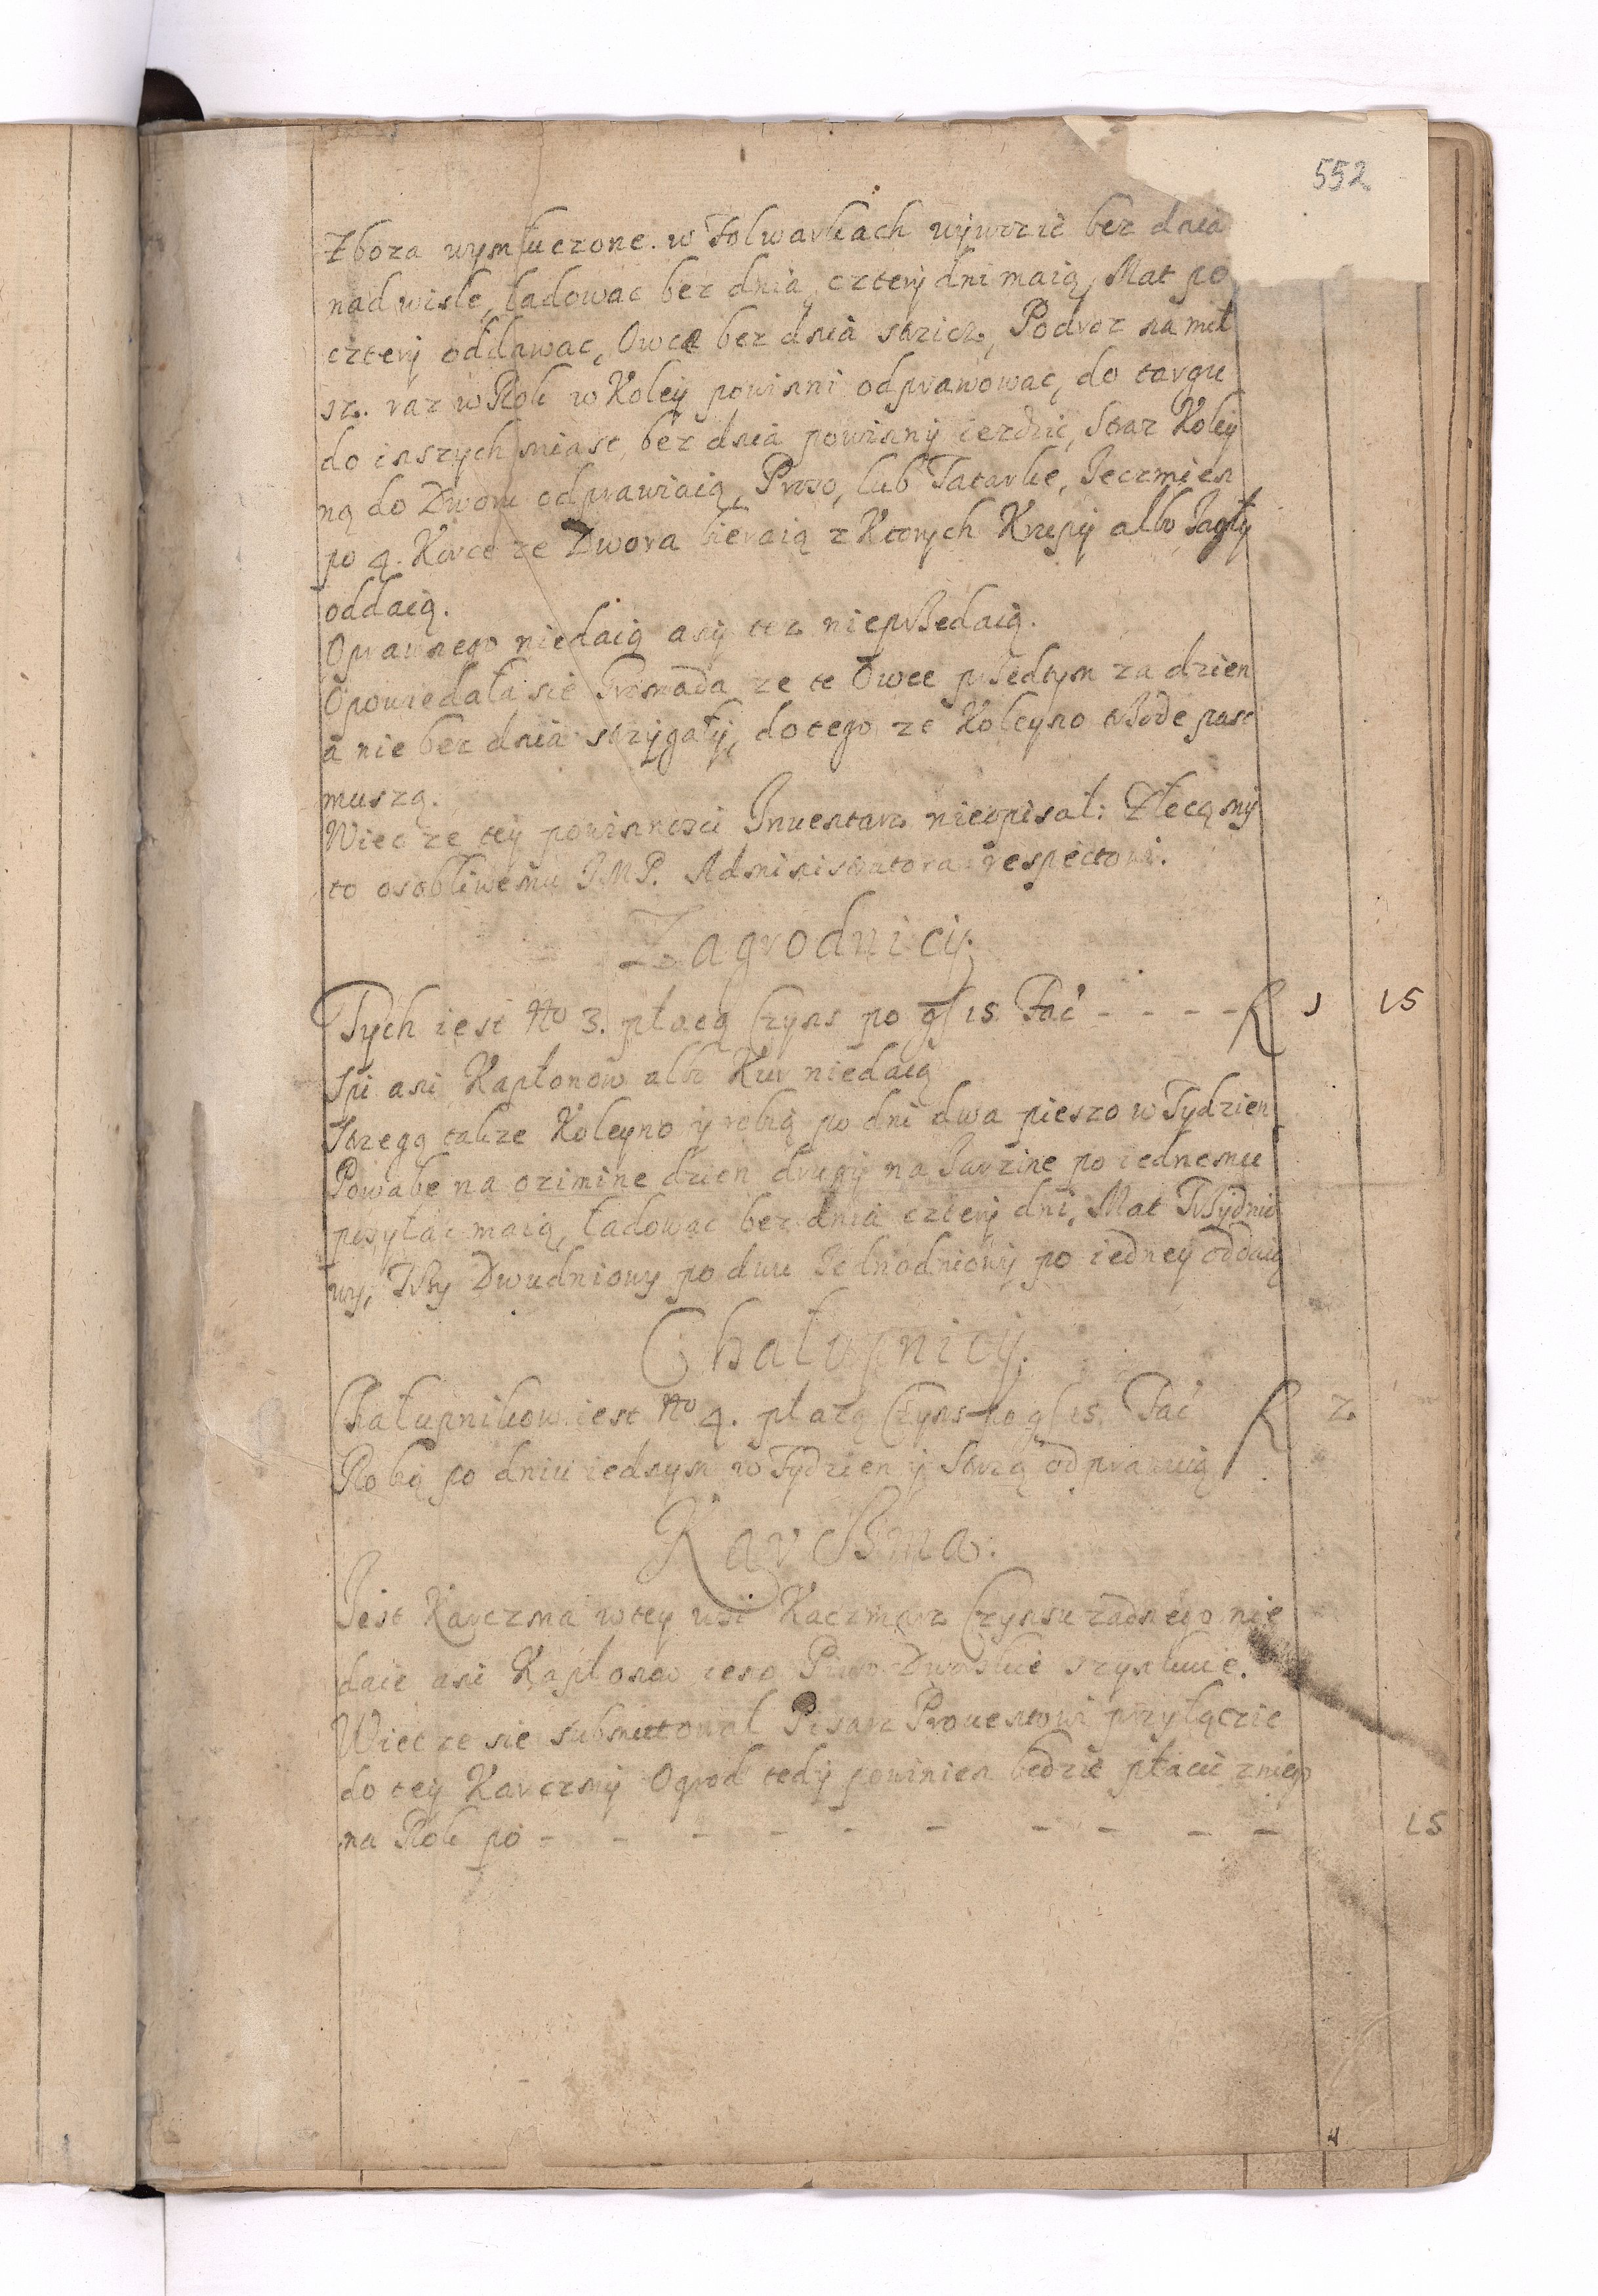 552
Zboza wymłuczone w Folwarkach wywozic bez dnia
nad wisłę, ładowac bez dnia, cztery dni maią, Mat po
cztery oddawac, Owce bez dnia strzicz, Podroz na mil
raz w Rok w Koley powinni odprawowac, do targu
do inszych miast, bez dnia powinny iezdzic, Straz Koley
ną do Dworu odprawiaią, Proso, lub Tatarke, Jeczmien
po 4. Korce ze Dwora bieraią z Ktorych Krupy albo Jagły
oddaią.
Oprawnego niedaią any tez nieprzedaią.
Opowiedała sie Gromada ze te Owce przedtym za dzien
a nie bez dnia strzygały, do tego ze Koleyno trzode pasc
muszą.
Wiec ze tey powinnosci Inuentarz nieopisał: Zlecamy
to osobliwemu JMP. Administratora respectowi.
Zagrodnicy.
Tych iest No 3. płacą Czyns po g 15. Fac - - - - f 1 15
Spi ani Kapłonow albo Kur niedaią
Strzegą takze Koleyno y robią po dni dwa pieszo w Tydzien
Powabe na ozimine dzien drugy na Jarzine po iednemu
posyłac maią, ładowac bez dnia cztery dni, Mat Trzydnio
wy, Trzy Dwudniowy po dwu Jednodniowy po iedney oddaią
Chałupnicy.
Chałupnikow iest No 4. płacą Czyns po g 15. Fac f 2
Robią po dniu iednym w Tydzien y Straz odprawuią
Karczma.
Jest Karczma w tey wsi Kaczmarz Czynsu zadnego nie
daie ani Kapłonow ieno Piwo Dworskie szynkuie.
Wiec ze sie submittował Pisarz Prouentowi przyłączic
do tey Karczmy Ogrod tedy powinien bedzie płacic zniego
na Rok po - - - - - - - - - - 15